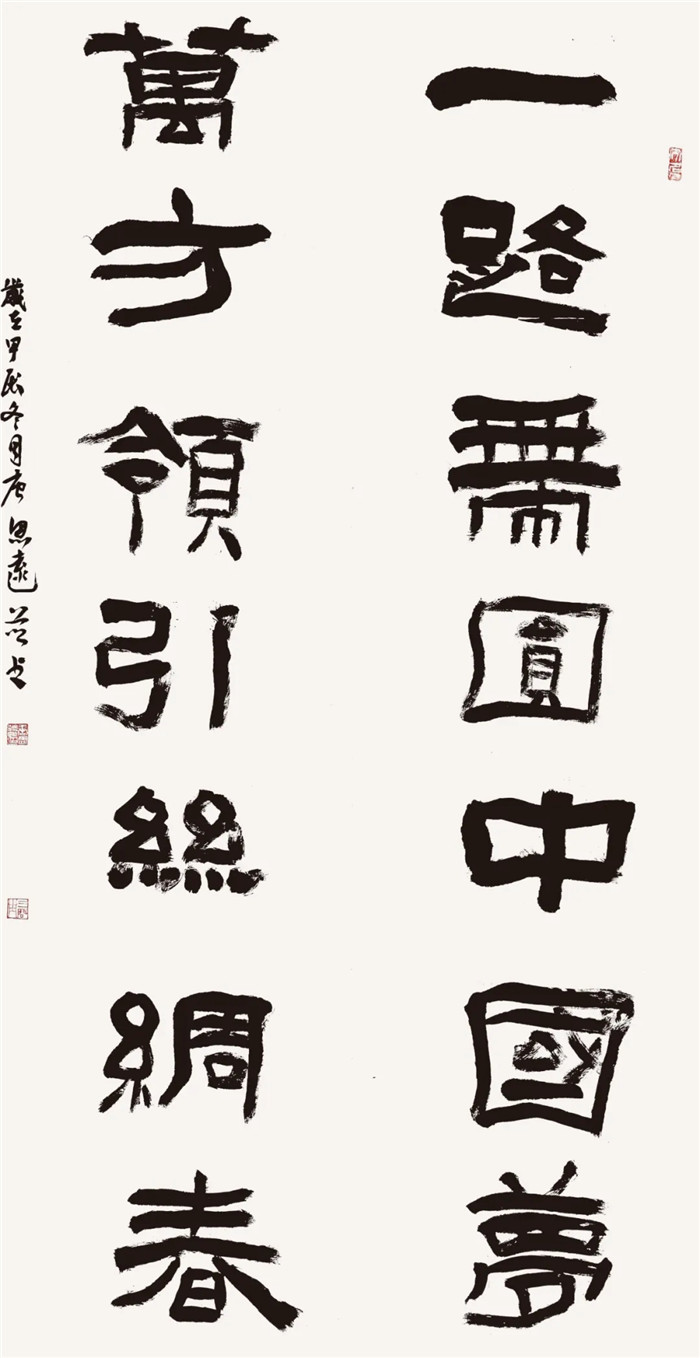 一路帶圓中國夢
萬方領引絲綢春
歲在甲辰冬月唐思遠